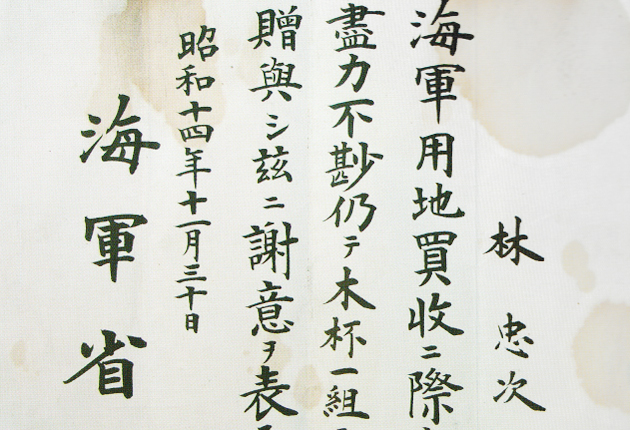 林忠次
海軍用地買收ニ際
盡力不尠仍テ木杯一組
贈與シ茲ニ謝意ヲ表
昭和十四年十一月三十日
海軍省